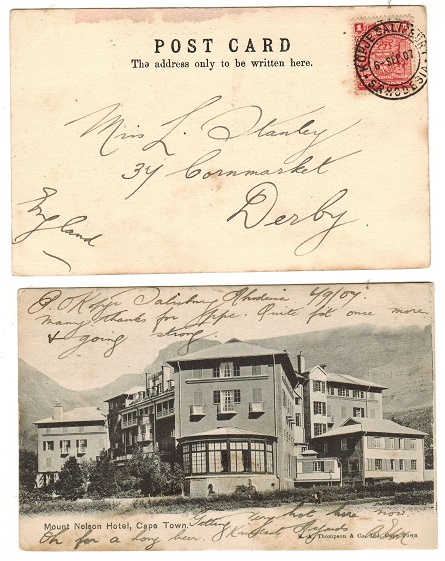 POST CARD
The address only to be written here.
KOPJE SALISBURY
6-SEP.07
RHODESIA
1
Miss L. Stanley
34 Cornmarket
Derby
England
P.O Kopje Salisbury Rhodesia 4/9/07.
many thanks for ppc. Quite fit once more
& going strong
Mount Nelson Hotel, Cape Town.
Getting very hot here now
R. A. Thompson & Co. Ltd. Cape Town
Oh for a long beer. Kindest Regards